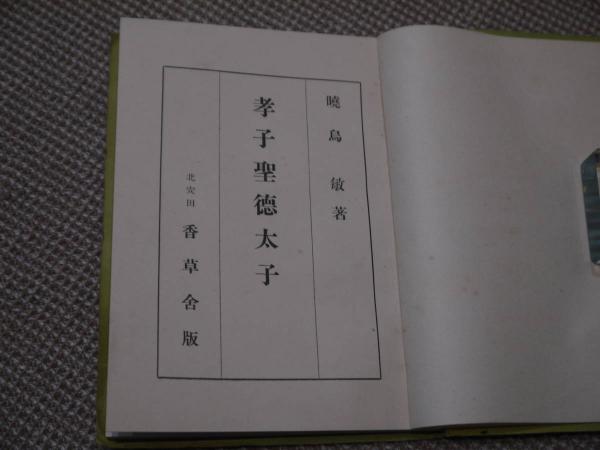 曉烏敏著
孝子聖德太子
北安田 香草舍版